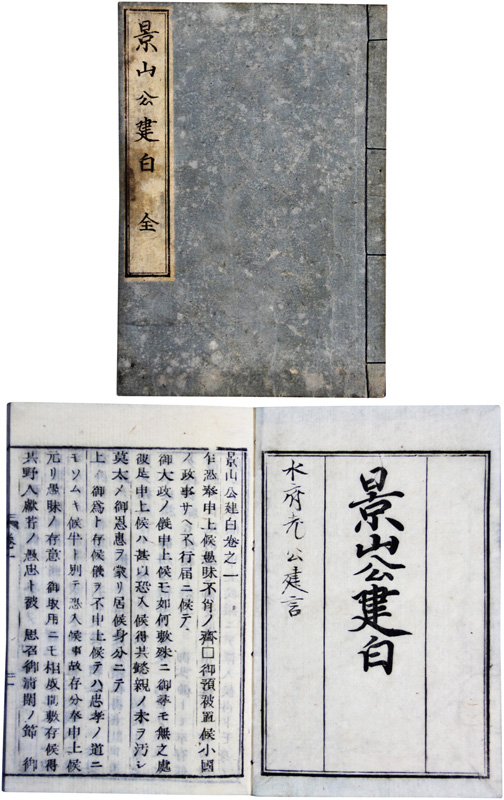 景山公建白 全
景山公建白
水府老公建言
景山公建白卷之一
乍恐奉申上候愚昧不肖ノ齊□御預被置候小國
ノ政事サヘ不行届ニ候テ
御大政ノ儀申上候モ如何敷殊ニ御尋モ無之處
彼是申上候ハ甚以恐入候得共懿親ノ末ヲ汚シ
莫太ノ御恩惠ヲ蒙リ居候身分ニテ
上ノ御爲ト存候儀ヲ不申上候テハ忠孝ノ道ニ
モソムキ候半ト別テ恐入候事故存分奉申上候
元ヨリ愚昧ノ存意 御取用ニモ相成間敷存候得
共野人獻芹ノ愚忠ト被 思召御清閑ノ節 御